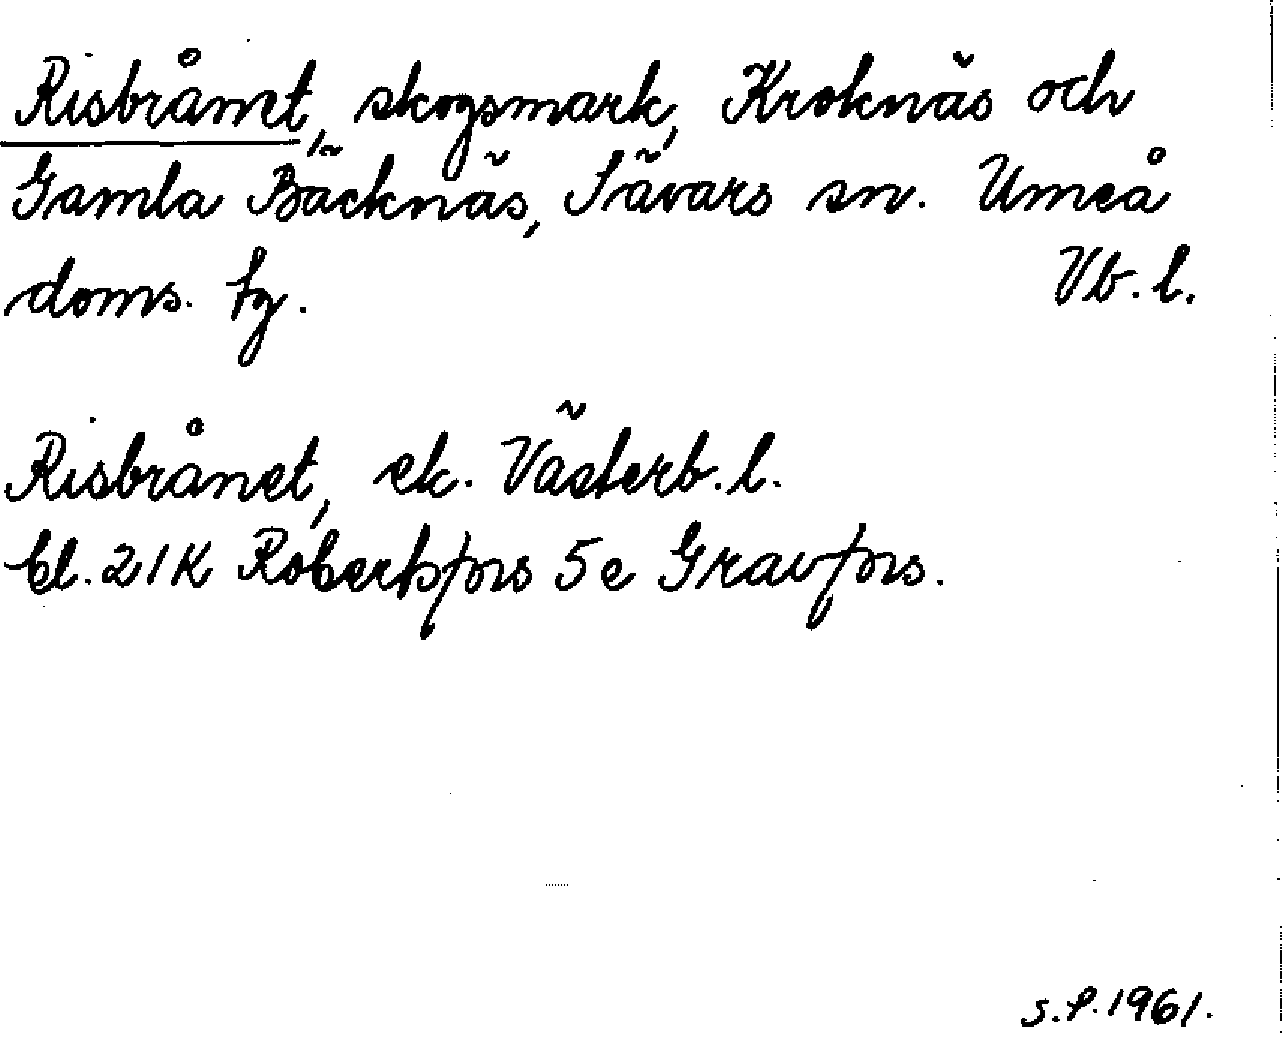 Risbrånet, skogsmark, Kroknäs och
Gamla Bäcknäs, Sävars sn. Umeå
doms. tg. Vb. l.
Risbrånet, ek. Västerb. l.
bl. 21K Robertsfors 5e Gravfors.
S.P. 1961.